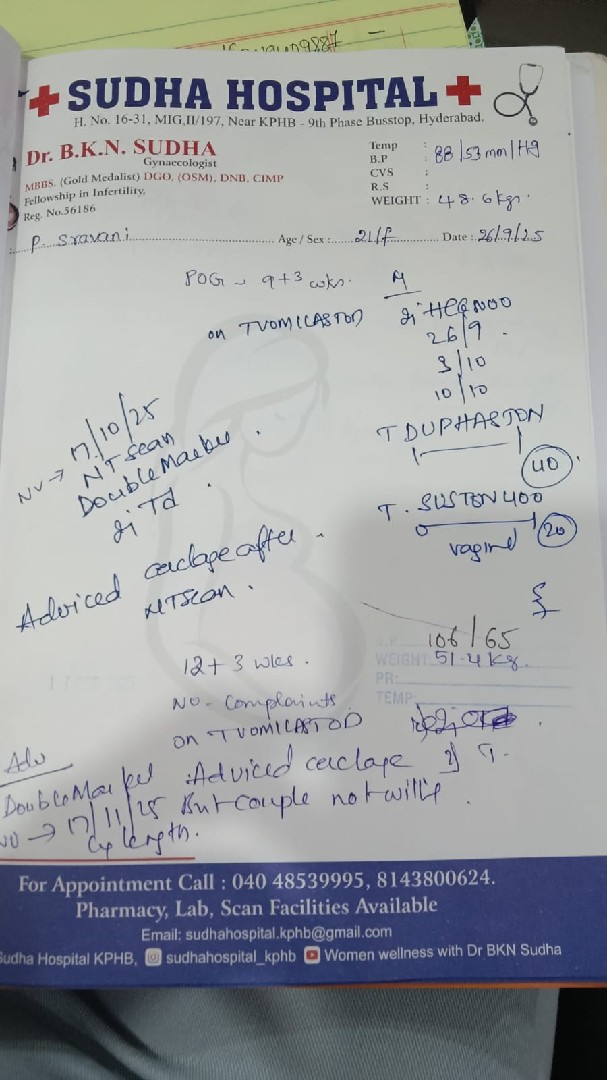 SUDHA HOSPITAL
H. No. 16-31, MIG,II/197, Near KPHB - 9th Phase Busstop, Hyderabad.
Dr. B.K.N. SUDHA
Gynaecologist
MBBS. (Gold Medalist) DGO, (OSM), DNB, CIMP
Fellowship in Infertility,
Reg. No.56186
Temp :
B.P : 88/53 mm/Hg
CVS :
R.S :
WEIGHT : 48.6 kgs
P. Sravani Age / Sex : 21/f Date : 26/9/25
POG ~ 9+3 wks.
on TVOMICASTOD
26/9
3/10
10/10
T DUPHASTON
40
T. SUSTEN 400
20
vaginal
NV → 17/10/25
NT scan
Double Marker
Td
Adviced cerclage after
NT scan.
106/65
WEIGHT 51.4 kg.
PR:
TEMP:
12+3 wks.
NO- complaints
on TVOMICASTOD
Adv
Double Marker
Adviced cerclage
But couple not willing
NV → 17/11/25
length.
For Appointment Call : 040 48539995, 8143800624.
Pharmacy, Lab, Scan Facilities Available
Email: sudhahospital.kphb@gmail.com
Sudha Hospital KPHB, sudhahospital_kphb Women wellness with Dr BKN Sudha